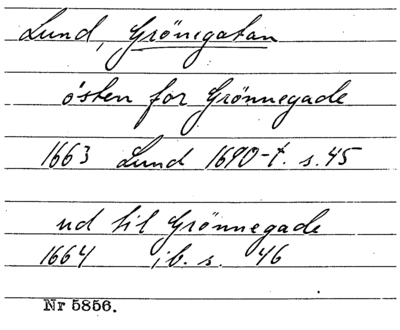 Lund, Grönegatan
östen for Grönnegade
1663 Lund 1690-t. s. 45
ud til Grönnegade
1664 ib. s. 46
Nr 5856.